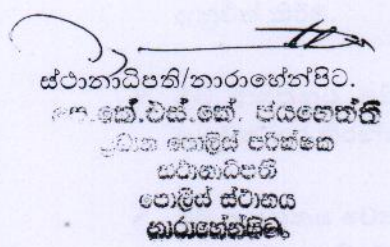 ස්ථානාධිපති/නාරාහේන්පිට.
කේ.එස්.කේ. ජයනෙත්ති
ප්‍රධාන පොලිස් පරික්ෂක
ස්ථානාධිපති
පොලිස් ස්ථානය
නාරාහේන්පිට.